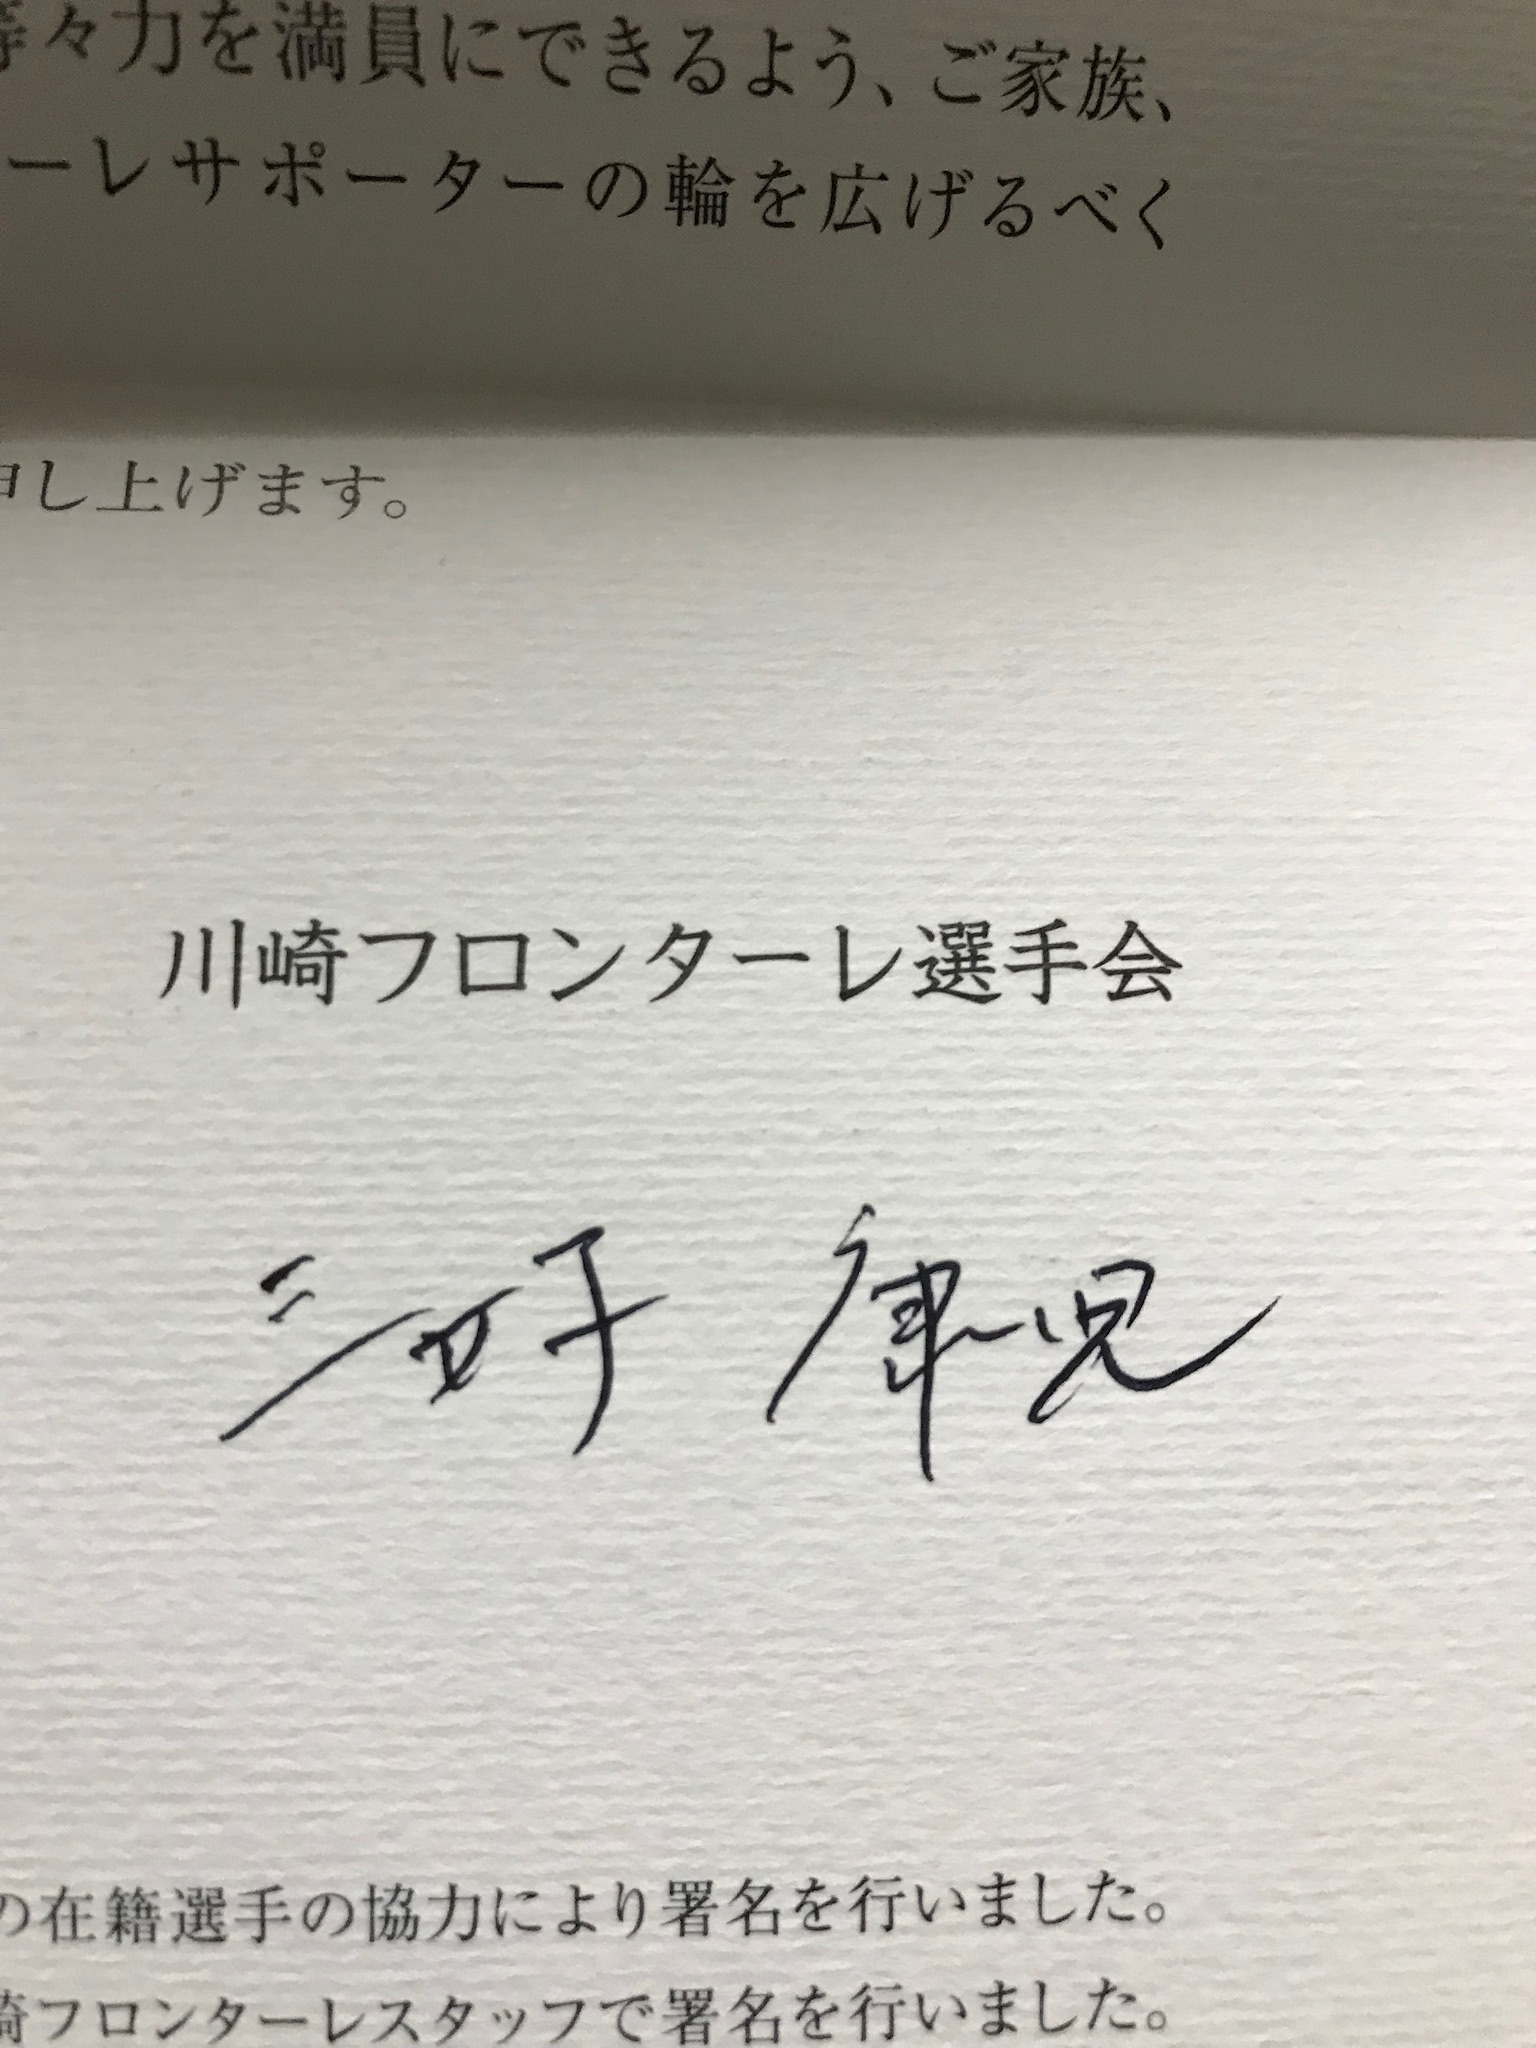 等々力を満員にできるよう、ご家族、
ーレサポーターの輪を広げるべく
申し上げます。
川崎フロンターレ選手会
三好 康児
の在籍選手の協力により署名を行いました。
崎フロンターレスタッフで署名を行いました。